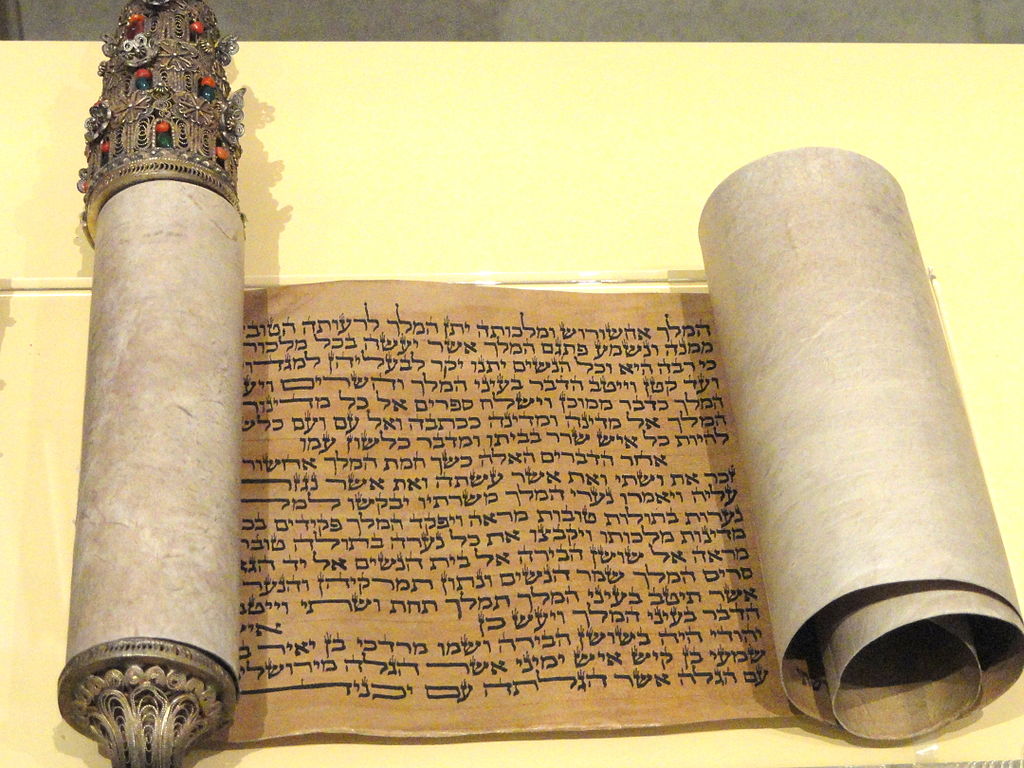 המלך אחשורוש ומלכותה יתן המלך לרעותה הטוב
ממנה ונשמע פתגם המלך אשר יעשה בכל מלכות
כי רבה היא וכל הנשים יתנו יקר לבעליהן למגדו
ועד קטן וייטב הדבר בעיני המלך והשרים ויע
המלך כדבר ממוכן וישלח ספרים אל כל מדינות
המלך אל מדינה ומדינה ככתבה ואל עם ועם כלש
להיות כל איש שרר בביתו ומדבר כלשון עמו
אחר הדברים האלה כשך חמת המלך אחשור
זכר את ושתי ואת אשר עשתה ואת אשר נגזר
עליה ויאמרו נערי המלך משרתיו יבקשו למל
נערות בתולות טובות מראה ויפקד המלך פקידים בכ
מדינות מלכותו ויקבצו את כל נערה בתולה טוב
מראה אל שושן הבירה אל בית הנשים אל יד הגא
סריס המלך שמר הנשים ונתון תמרקיהן והנער
אשר תיטב בעיני המלך תמלך תחת ושתי וייט
הדבר בעיני המלך ויעש כן אי
יהודי היה בשושן הבירה ושמו מרדכי בן יאיר ב
שמעי בן קיש איש ימיני אשר הגלה מירושלי
עם הגלה אשר הגלתה עם יכניה